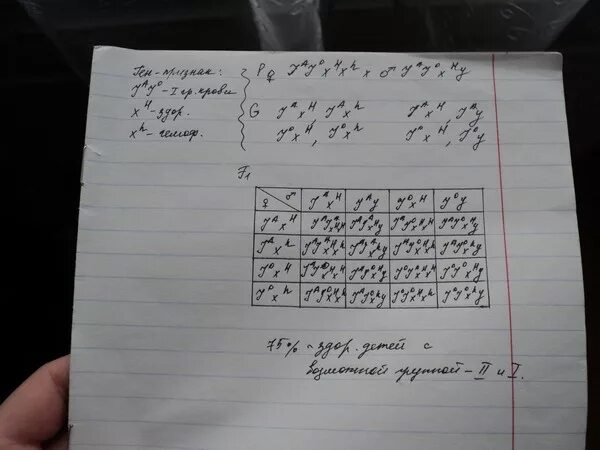 Ген-признак:
J^A J^O - I гр. крови
X^H - здор.
X^h - гемоф.
P ♀ J^A J^O X^H X^h × ♂ J^A J^O X^H y
G J^A X^H, J^A X^h J^A X^H, J^A y
J^O X^H, J^O X^h J^O X^H, J^O y
F₁
♀ ♂ J^A X^H J^A y J^O X^H J^O y
J^A X^H J^A J^A X^H X^H J^A J^A X^H y J^A J^O X^H X^H J^A J^O X^H y
J^A X^h J^A J^A X^H X^h J^A J^A X^h y J^A J^O X^H X^h J^A J^O X^h y
J^O X^H J^A J^O X^H X^H J^A J^O X^H y J^O J^O X^H X^H J^O J^O X^H y
J^O X^h J^A J^O X^H X^h J^A J^O X^h y J^O J^O X^H X^h J^O J^O X^h y
75% - здор. детей с
возможной группой - II и I.